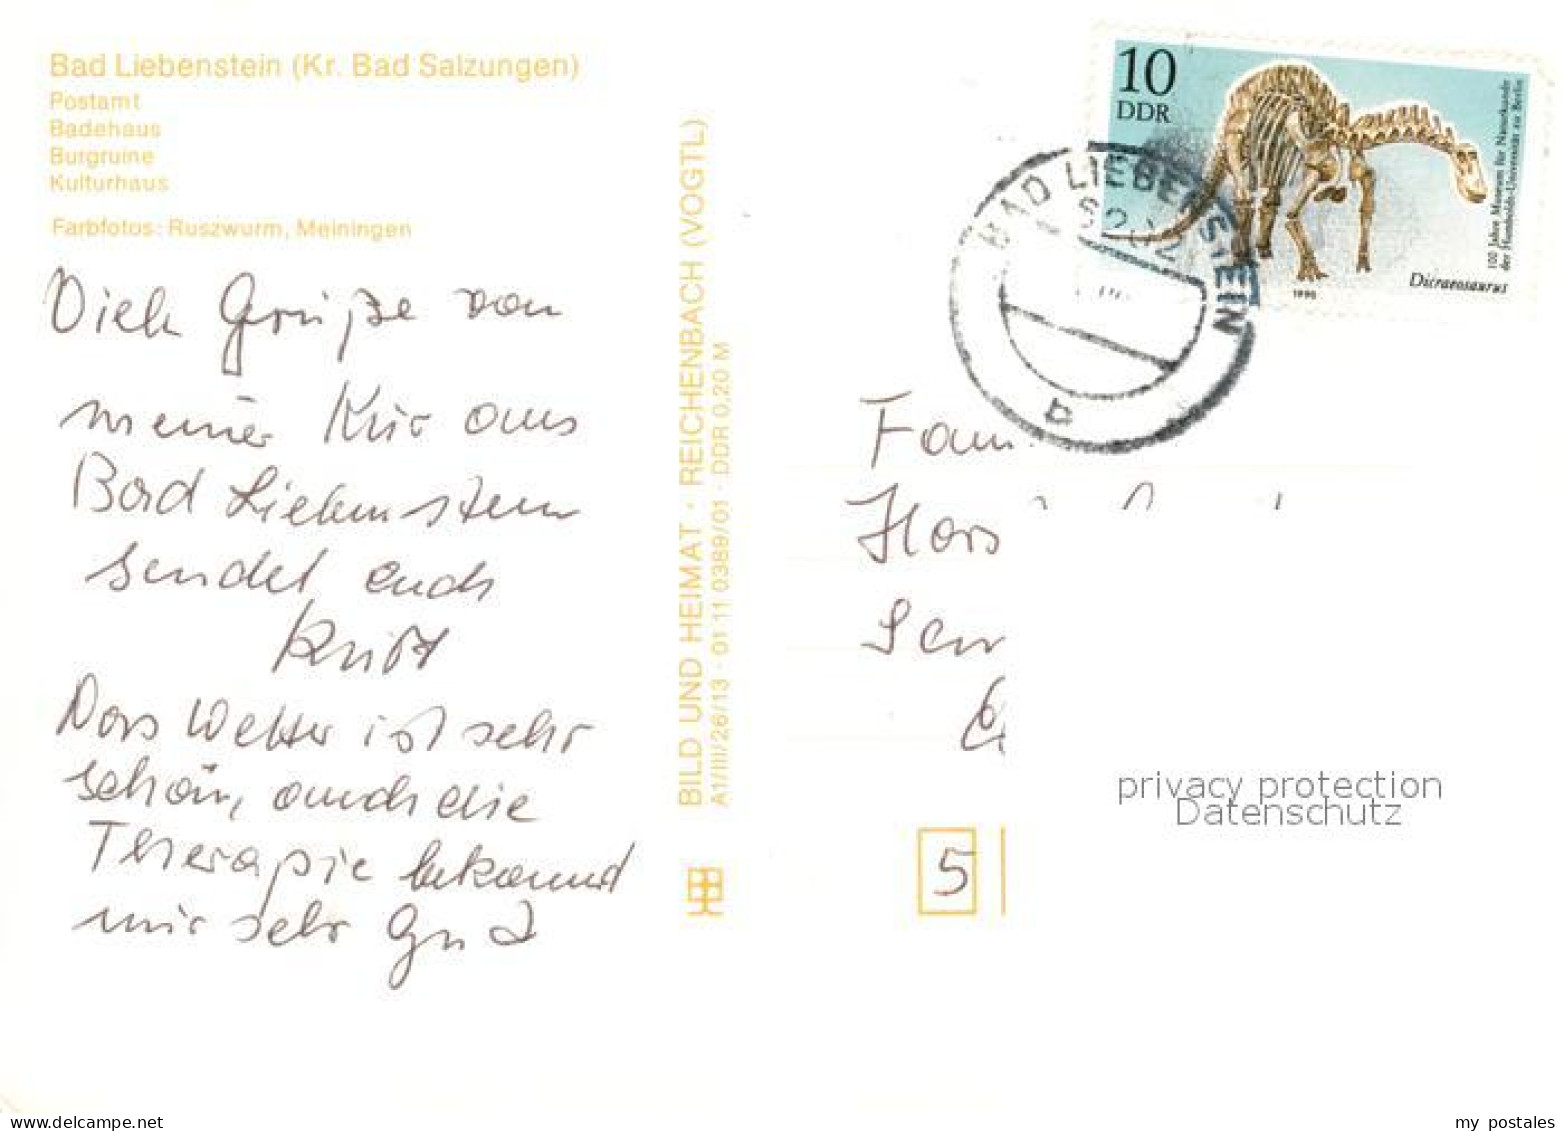 Bad Liebenstein (Kr. Bad Salzungen)
Postamt
Badehaus
Burgruine
Kulturhaus
Farbfotos: Ruszwurm, Meiningen
Viele Grüße von
meiner Kur aus
Bad Liebenstein
sendet euch
Das Wetter ist sehr
schön, auch die
Therapie bekommt
mir sehr gut
BILD UND HEIMAT · REICHENBACH (VOGTL)
A1/III/26/13 · 01 11 0389/01 · DDR 0,20 M
10
DDR
100 Jahre Museum für Naturkunde
der Humboldt-Universität zu Berlin
Dicraeosaurus
1990
BAD LIEBENSTEIN
6202
b
Fam
Hors
5
privacy protection
Datenschutz
www.delcampe.net
my_postales